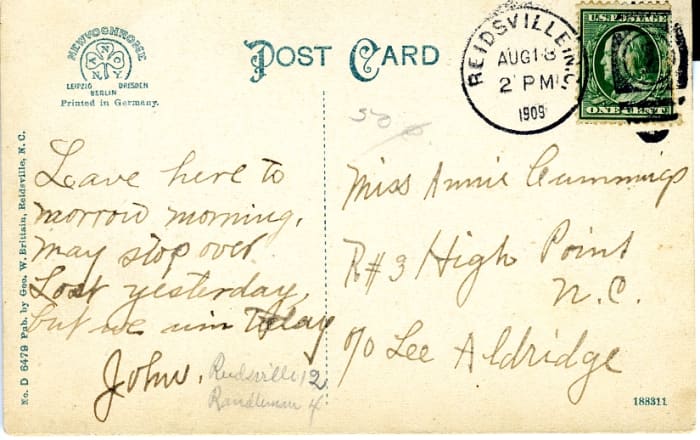 NEWVOCHROME
ANCO
N.Y.
LEIPZIG DRESDEN
BERLIN
Printed in Germany.
POST CARD
REIDSVILLE, N.C.
AUG 18
2 PM
1909
U.S. POSTAGE
ONE CENT
No. D 6479 Pub. by Geo. W. Brittain, Reidsville, N. C.
Leave here to
morrow morning.
may stop over
Lost yesterday,
but we win Today
John.
Reidsville 12
Randleman 4
Miss Annie Cummings
R#3 High Point
N.C.
c/o Lee Aldridge
188311